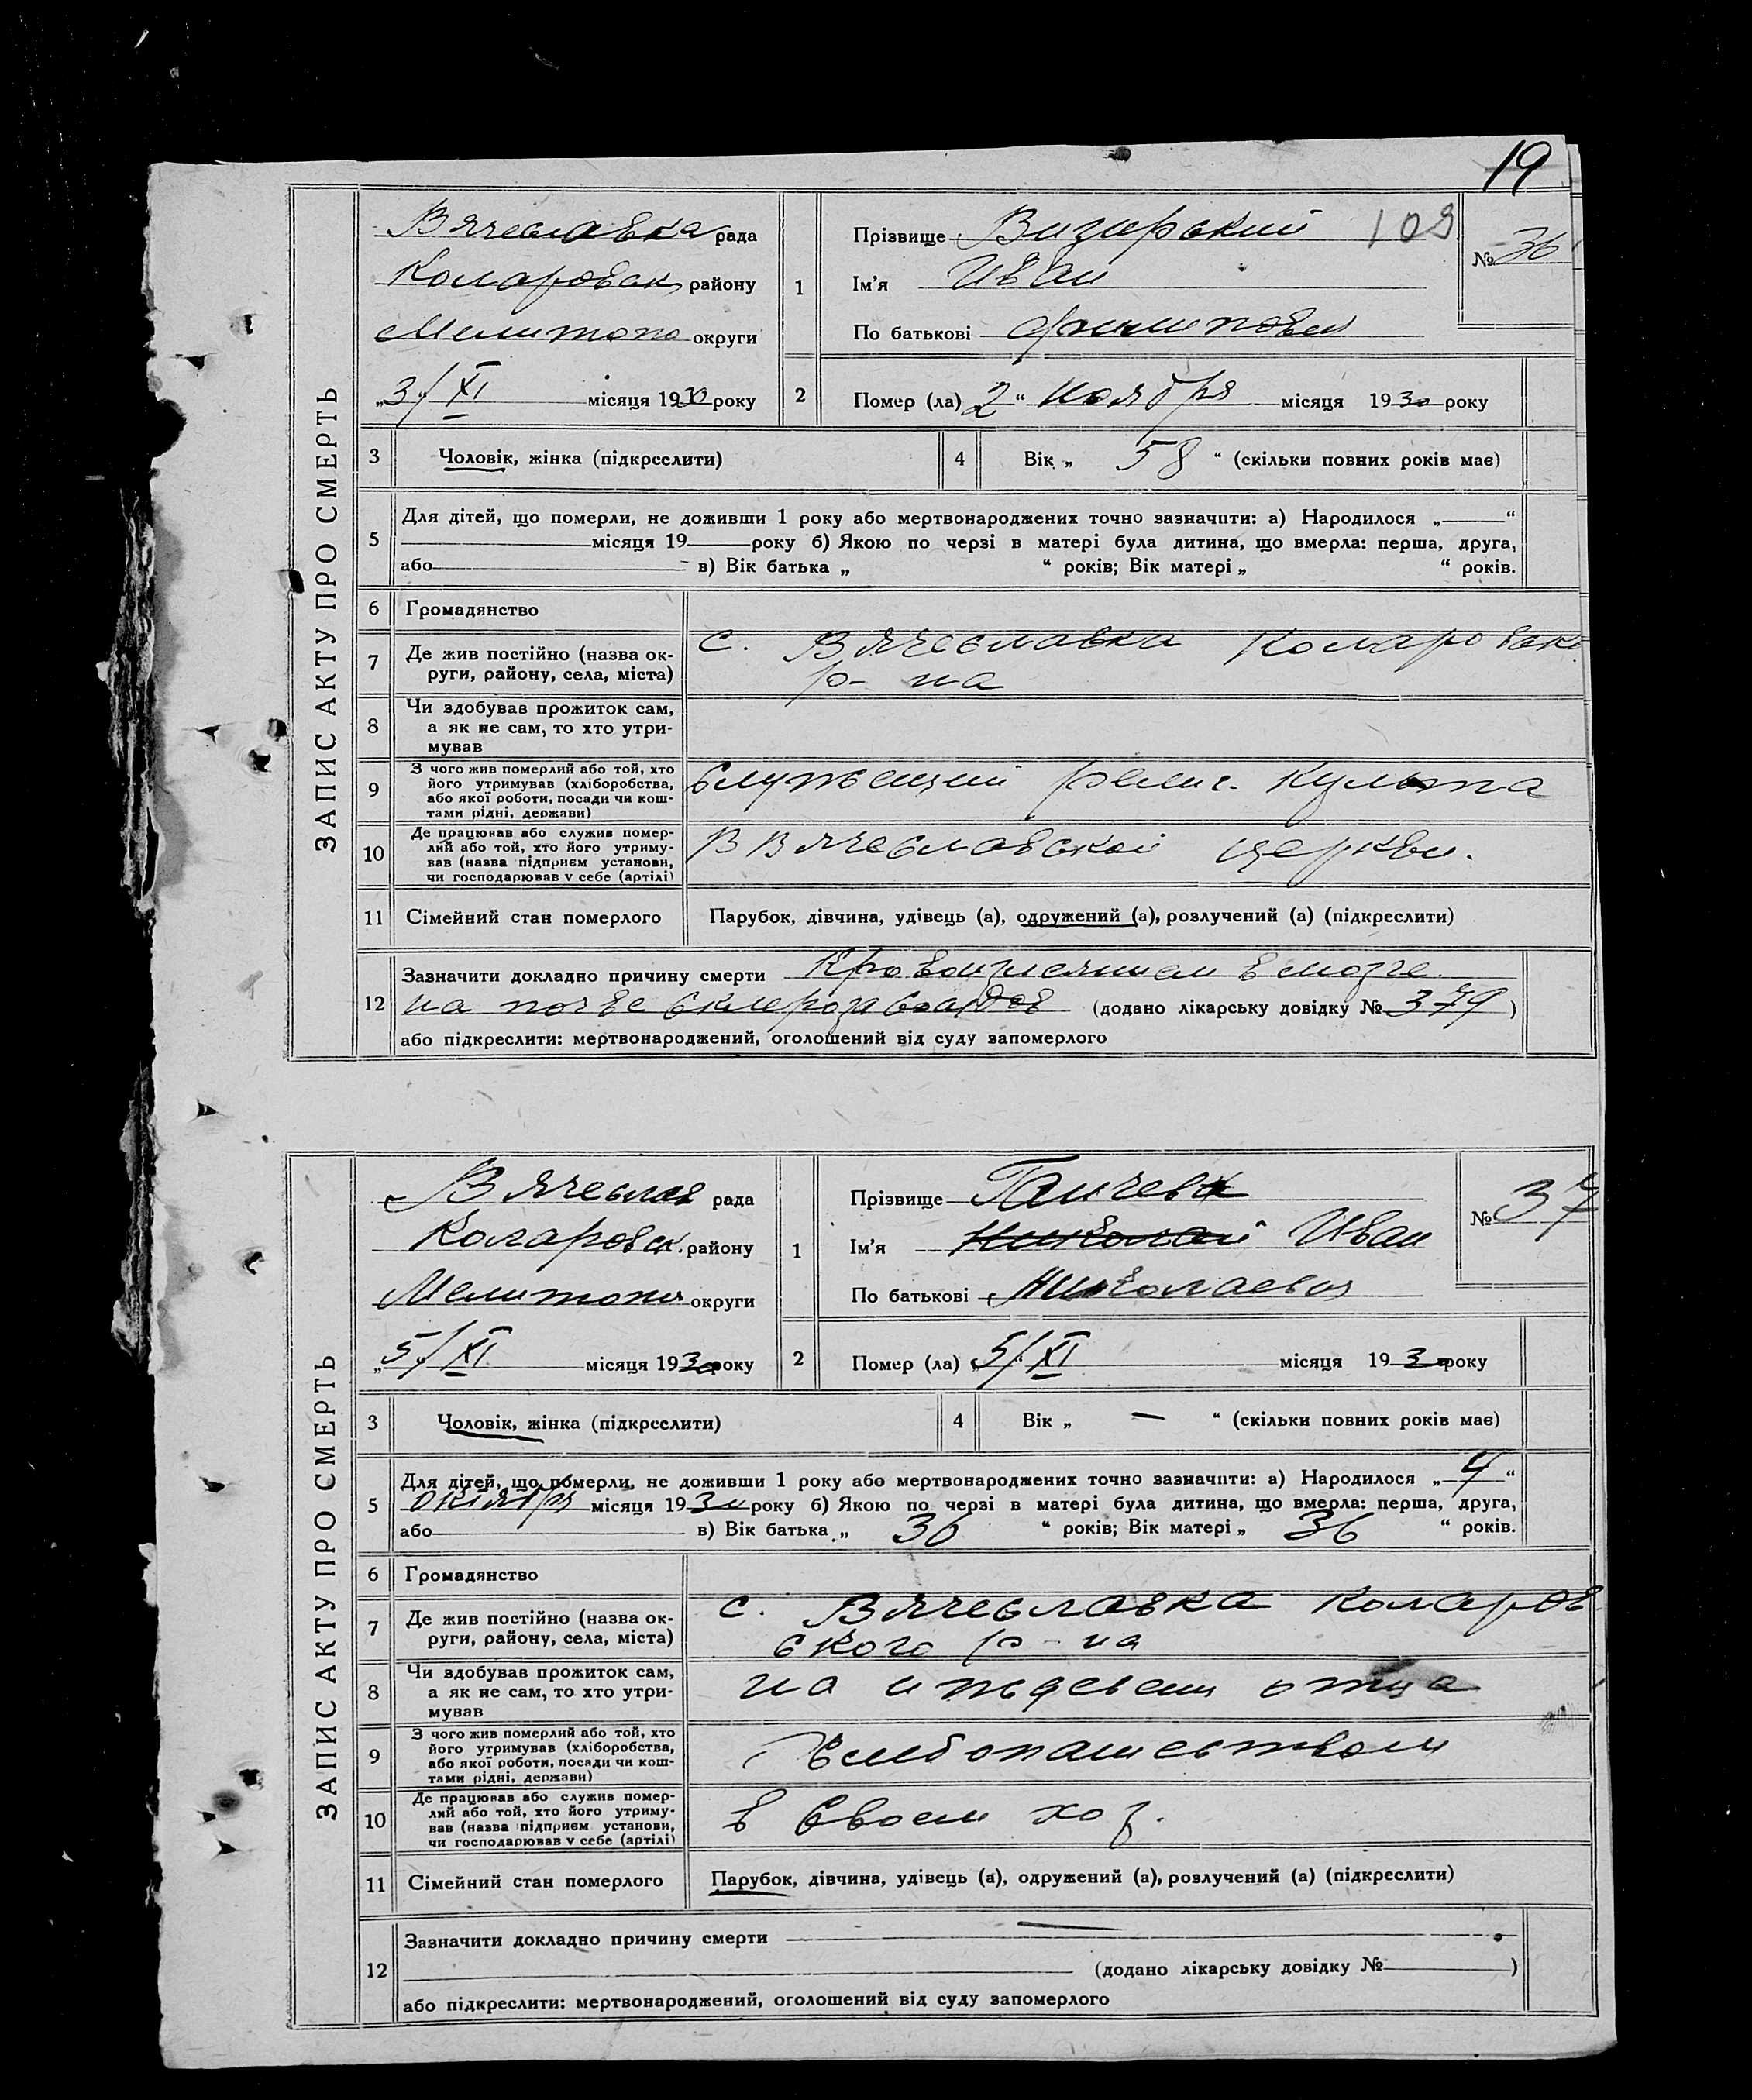 19
ЗАПИС АКТУ ПРО СМЕРТЬ
Вячеславка рада
Коларовск району
Мелитопо округи
„3/XI місяця 1930 року
1 Прізвище Визирский 109
Ім'я Иван
По батькові Филипович
№ 36
2 Помер (ла) 2“ Ноября місяця 1930 року
3 Чоловік, жінка (підкреслити)
4 Вік „ 58 “ (скільки повних років має)
5 Для дітей, що померли, не доживши 1 року або мертвонароджених точно зазначити: а) Народилося „ “
місяця 19 року б) Якою по черзі в матері була дитина, що вмерла: перша, друга,
або в) Вік батька „ “ років; Вік матері „ “ років.
6 Громадянство
7 Де жив постійно (назва ок-
руги, району, села, міста)
с. Вячеславка Коларовск.
р-на
8 Чи здобував прожиток сам,
а як не сам, то хто утри-
мував
9 З чого жив померлий або той, хто
його утримував (хліборобства,
або якої роботи, посади чи кош-
тами рідні, держави)
служащий религ. культа
10 Де працював або служив помер-
лий або той, хто його утриму-
вав (назва підприєм установи,
чи господарював у себе (артілі)
В Вячеславской церкви.
11 Сімейний стан померлого Парубок, дівчина, удівець (а), одружений (а), розлучений (а) (підкреслити)
12 Зазначити докладно причину смерти Кровоизлеянием в мозге.
на почве склероза сосудов (додано лікарську довідку № 379)
або підкреслити: мертвонароджений, оголошений від суду запомерлого
ЗАПИС АКТУ ПРО СМЕРТЬ
Вячеслав рада
Коларовск. району
Мелитопол округи
„5/XI місяця 1930 року
1 Прізвище Ганчев
Ім'я Николай Иван
По батькові Николаевич
№ 37
2 Помер (ла) „5/XI місяця 1930 року
3 Чоловік, жінка (підкреслити)
4 Вік „ — “ (скільки повних років має)
5 Для дітей, що померли, не доживши 1 року або мертвонароджених точно зазначити: а) Народилося „ 4 “
октября місяця 1930 року б) Якою по черзі в матері була дитина, що вмерла: перша, друга,
або в) Вік батька „ 36 “ років; Вік матері „ 36 “ років.
6 Громадянство
7 Де жив постійно (назва ок-
руги, району, села, міста)
с. Вячеславка Коларов
ского р-на
8 Чи здобував прожиток сам,
а як не сам, то хто утри-
мував
на иждевении отца
9 З чого жив померлий або той, хто
його утримував (хліборобства,
або якої роботи, посади чи кош-
тами рідні, держави)
Хлебопашеством
10 Де працював або служив помер-
лий або той, хто його утриму-
вав (назва підприєм установи,
чи господарював у себе (артілі)
в своем хоз.
11 Сімейний стан померлого Парубок, дівчина, удівець (а), одружений (а), розлучений (а) (підкреслити)
12 Зазначити докладно причину смерти —
(додано лікарську довідку № )
або підкреслити: мертвонароджений, оголошений від суду запомерлого